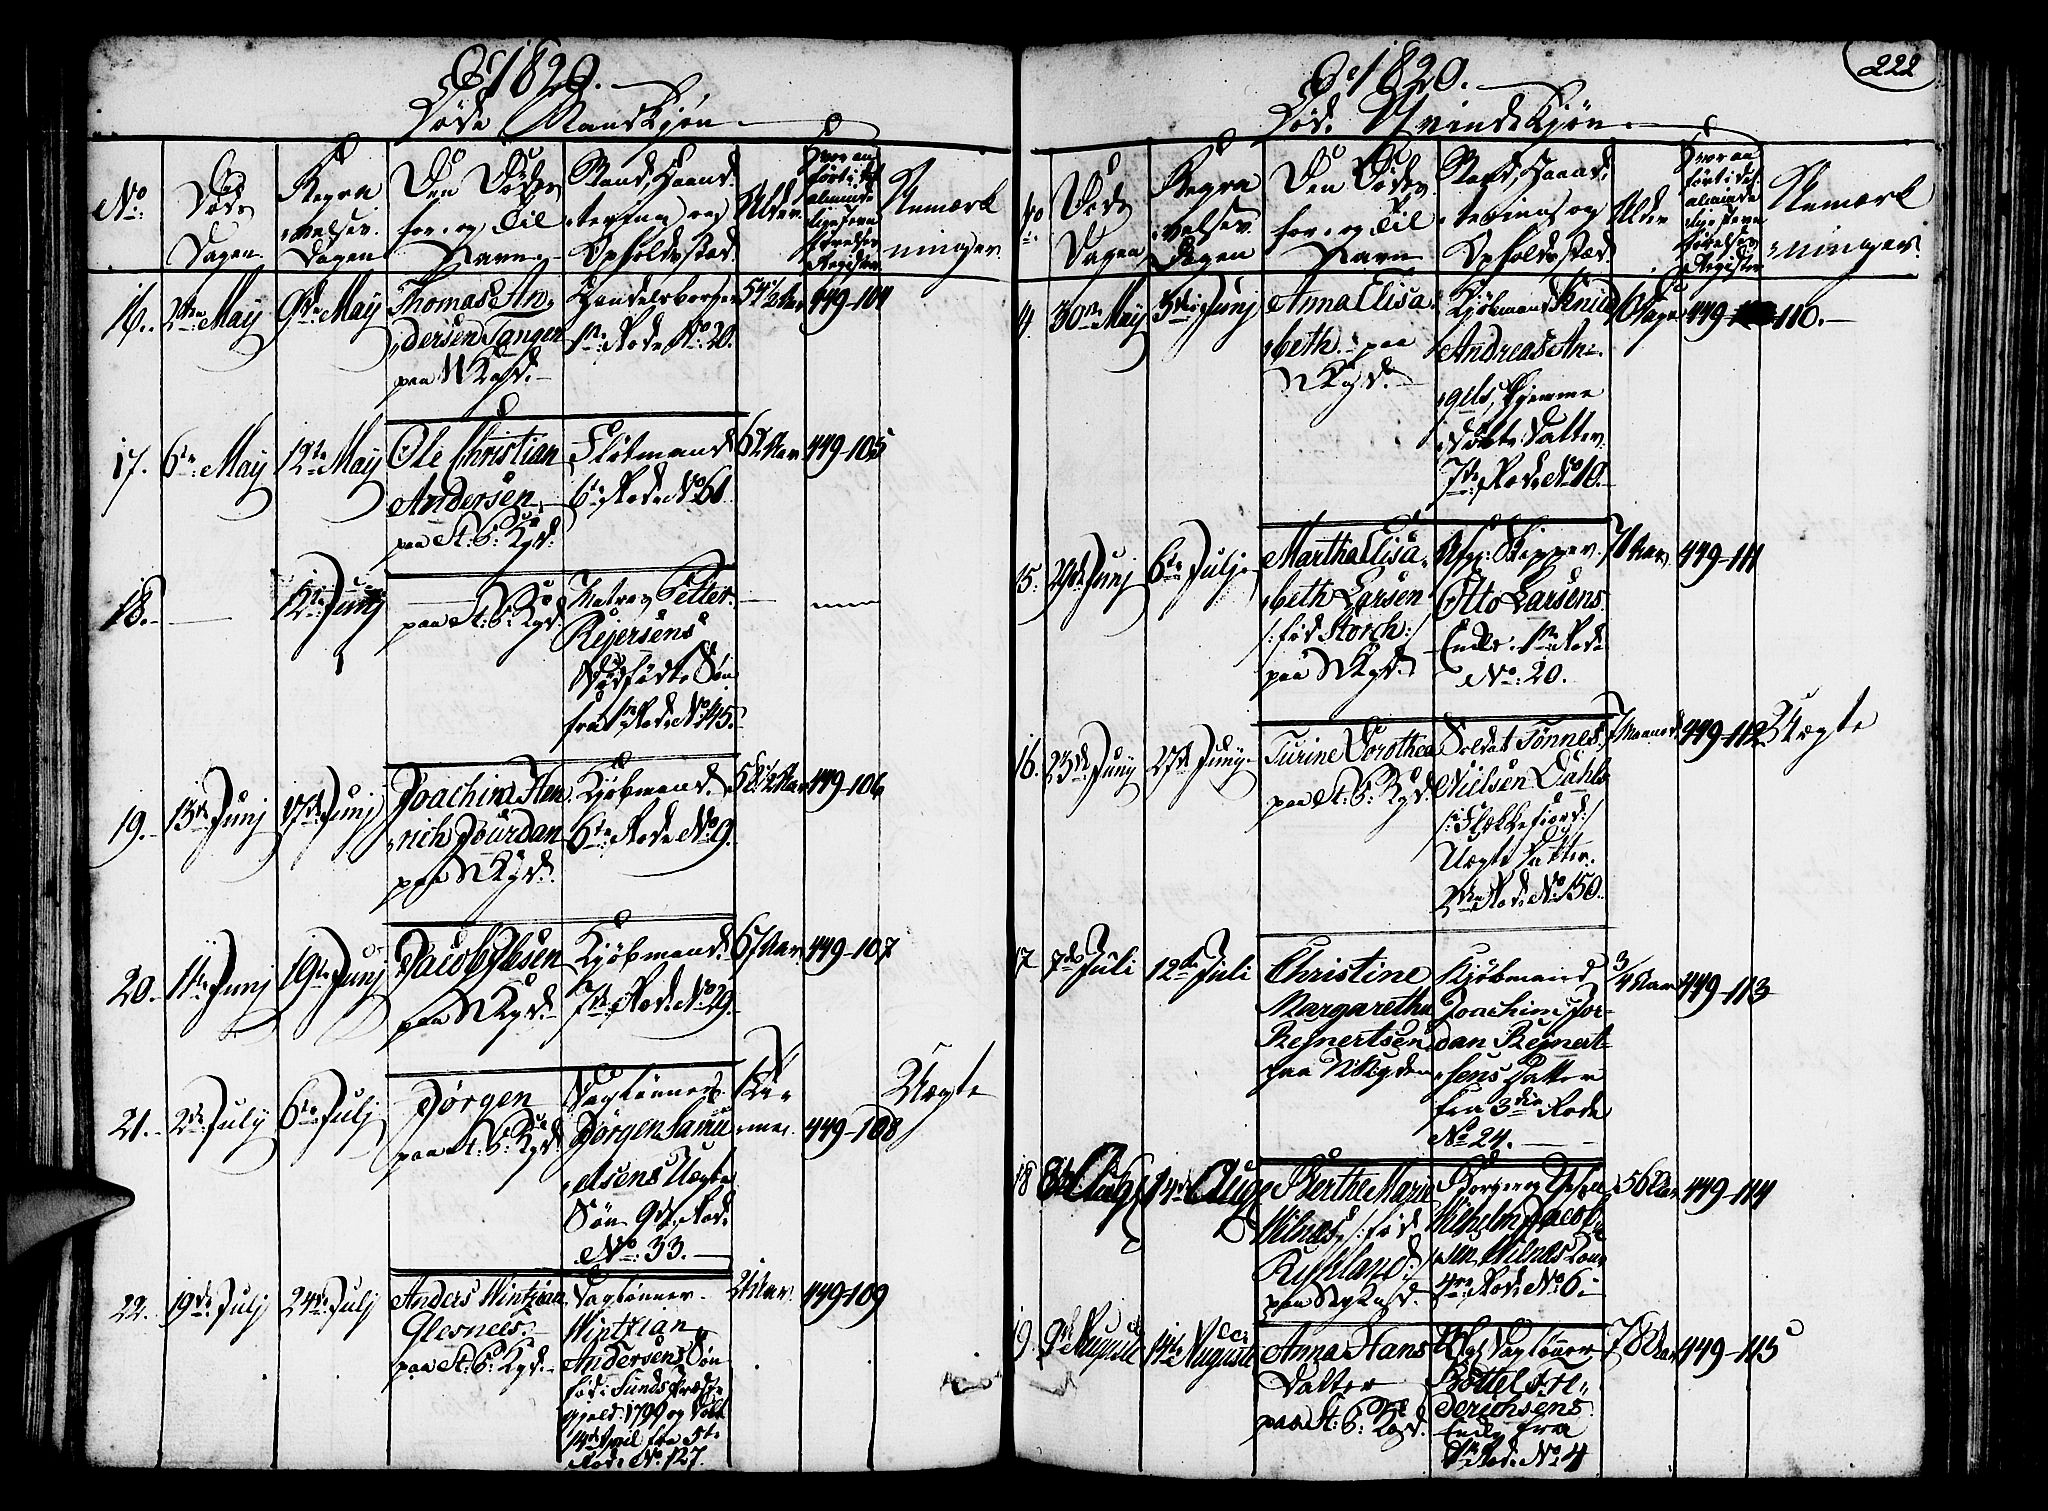 1820.
Døde Mandkjøn
No:
Døds
Dagen
Begra
velses
Dagen
Den Dødes
for- og Til
Navn
Stand, Haand:
tering og
Opholdssted
Alder
Hvor an
ført i det
alminde
lige Jevn
førelses
Register
Anmærk
ninger
16. 2den May 9de May
Thomas An,
dersen Tangen
paa N Kgd.
Handelsborger
1ste Rode No: 20.
54 1/2 Aar
449-104
17. 6te May 12te May
Ole Christian
Andersen
paa St: P: Kgd.
Flotmand
6te Rode No 61.
62 Aar
449-105
18. — 12te Junj
paa St: P: Kgd.
Matros Petter
Rejersens
Dødfødte Søn
fra 1ste Rode No 45.
19. 13de Junj 17de Junj
Joachim Hen
rich Jourdan
paa N Kgd.
Kjøbmand.
6te Rode No 9.
58 1/2 Aar
449-106
20. 11te Junj 19de Junj
Jacob Ibsen
paa N Kgd.
Kjøbmand
7de Rode No 29.
67 Aar
449-107
21. 2den July 6te Julj
Jørgen
paa St: P: Kgd.
Daglønner
Jørgen Samu
elsens Uægte
Søn 9de Rode
No: 33.
449-108
Uægte
22. 19de Julj 24de July
Anders Wintzian
Glesnees.
paa St: P: Kgd.
Daglønner
Wintzian
Andersens Søn
fød i Sunds Præste
gjeld 1799 og Døbt
14de April fra 5te
Rode No 127.
21 Aar.
449-109
222
1820.
Døde Qvindekjøn
No
Døds
Dagen
Begra
velses
Dagen
Den Dødes
for- og Til
Navn
Stand, Haand:
tering og
Opholdssted
Alder
Hvor an
ført i det
alminde
lige Jevn
førelses
Register
Anmærk
ninger
14 30te May 5te Junj
Anna Elisa
beth paa
N Kgd.
Kjøbmand Knud
Andreas An
gels, hjemme
døbte Datter
7de Rode No 10.
449- 110.
15. 29de Junj 6te Julj
Martha Elisa
beth Larsen
/: fød Storch :/
paa N Kgd.
Skipper
Otto Larsens
Enke 1ste Rode
No: 20.
71 Aar
449-111
16. 23de Junj 27de Juny
Turine Dorothea
paa St: P: Kgd.
Soldat Tønnes
Nielsen Dahls
/: Flekkefiord :/
Uægte Datter.
2den Rode No 150.
7 Maaned
449-112
Uægte
17 7de Juli 12te Juli
Christine
Margaretha
Rejnertsen
paa N Kigden
Kjøbmand
Joachim Jor-
dan Rejnert-
sens Datter
fra 3die Rode
No 24.
3/4 Aar
449-113
18 8de Aug 14de Aug
Berthe Marie
Wilnes /: fød
Ryfeland :/
paa Ny Kgd.
Borger og
Wilhelm Jacob
sen Wilnes Kone
4re Rode No 6
56 Aar
449-114
19. 9de August 14te August
Anna Hans
Datter
paa St: P: Kgd.
Dagløner
Bottel Fre,
derichsens
Enke fra
Rode No 4
78 Aar
449-115